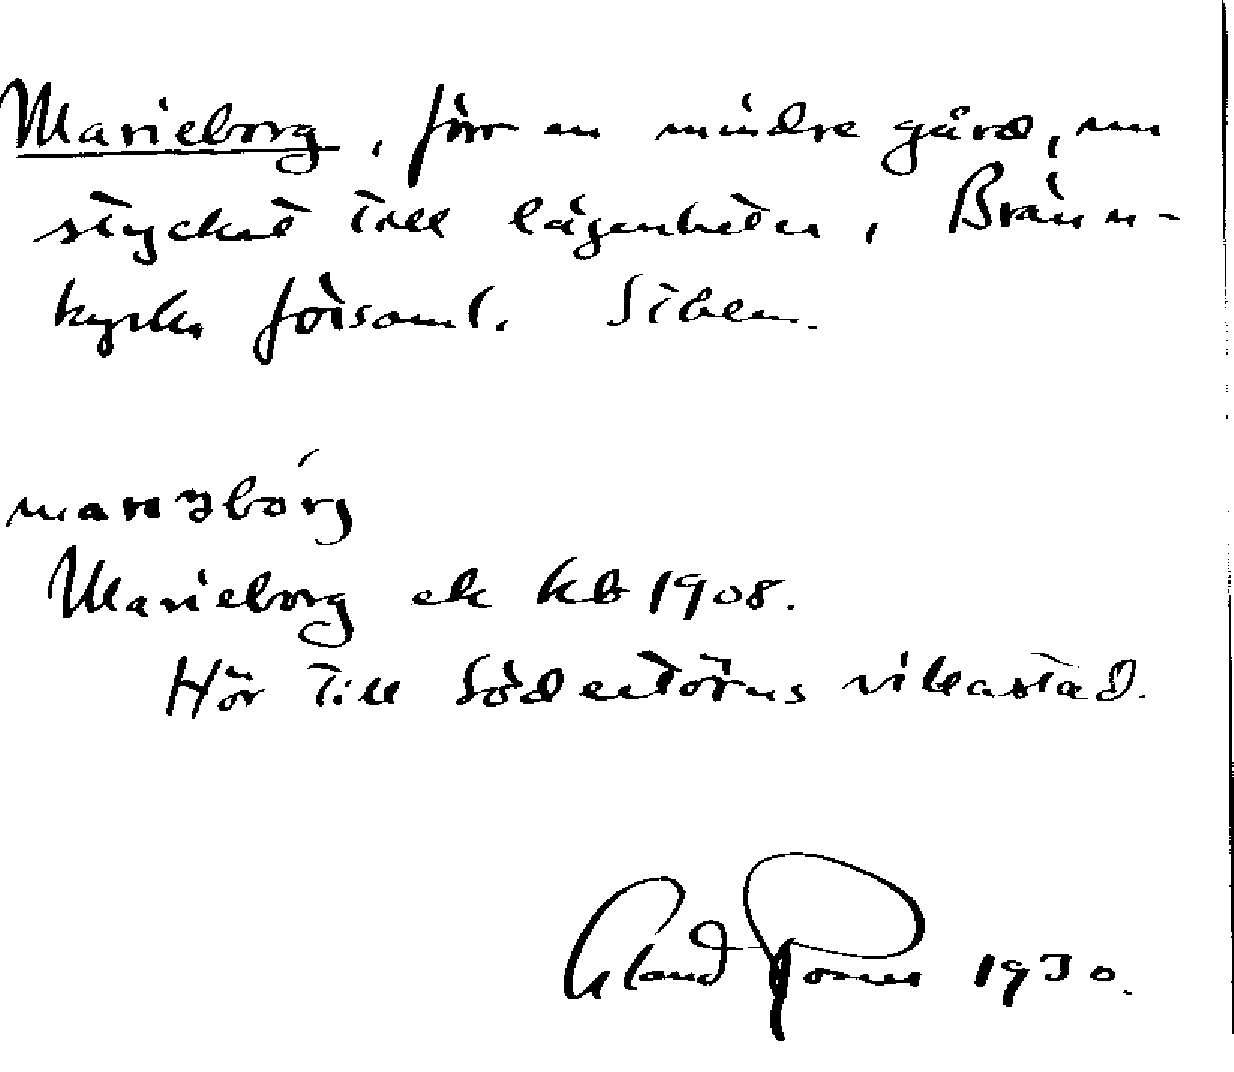 Marieborg, förr en mindre gård, nu
styckad till lägenheter, Bränn-
kyrka församl. Sthlm.
Marieborg ek kb 1908.
Hör till Södertörns villastad.
1930.